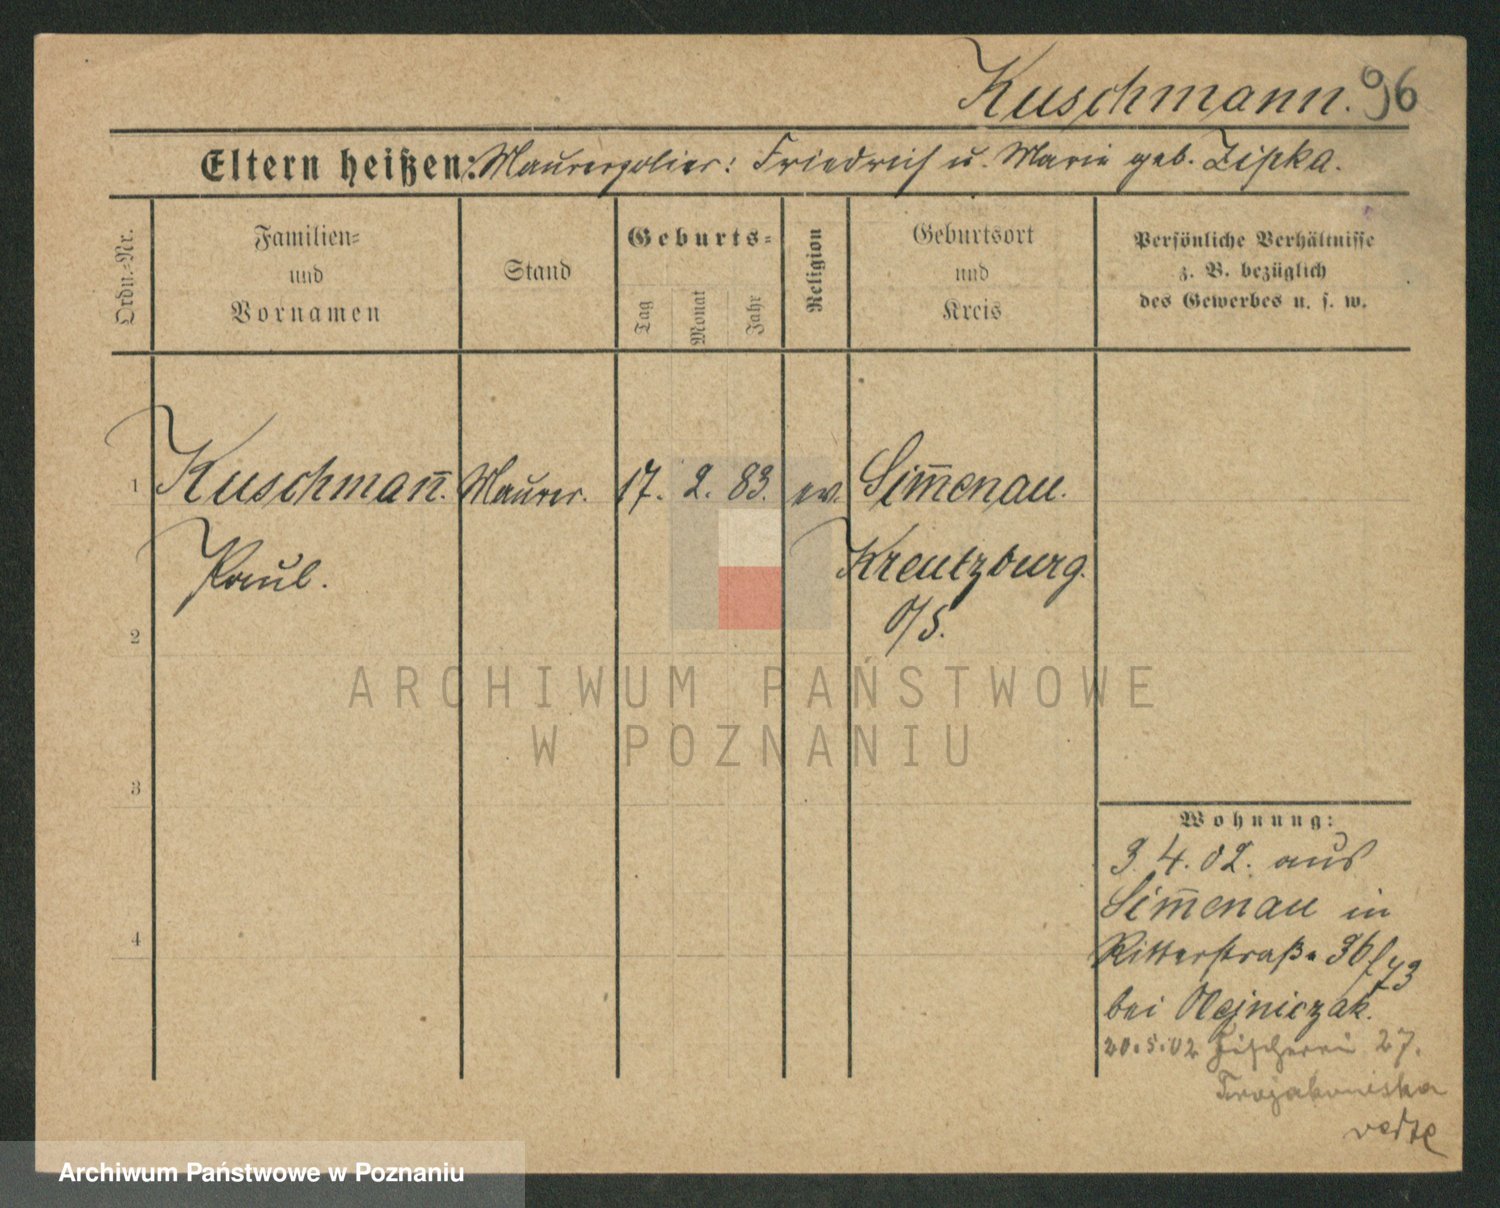 Kuschmann. 96
Eltern heißen: Maurerpolier: Friedrich u. Marie geb. Zipka.
Ordn.-Nr.
Familien-
und
Vornamen
Stand
Geburts-
Tag
Monat
Jahr
Religion
Geburtsort
und
Kreis
Persönliche Verhältnisse
z. B. bezüglich
des Gewerbes u. s. w.
1 Kuschman̄. Maurer. 17. 2. 83. ev. Sim̄enau.
Paul. Kreutzburg.
O/S.
2
3
4
Wohnung:
3. 4. 02. aus
Sim̄enau in
Ritterstraße 36/73
bei Olejniczak.
20.5.02 Fischerei 27.
verte
ARCHIWUM PAŃSTWOWE
W POZNANIU
Archiwum Państwowe w Poznaniu